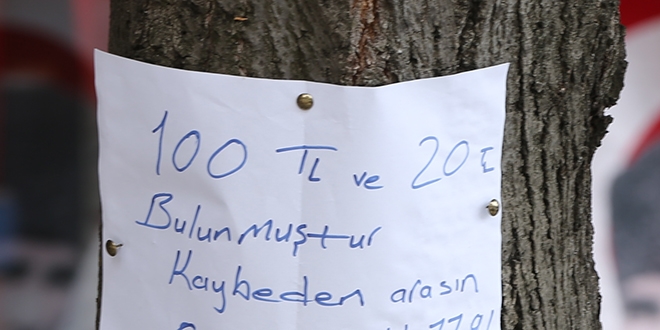 100 TL ve 20 TL
Bulunmuştur
Kaybeden arasın